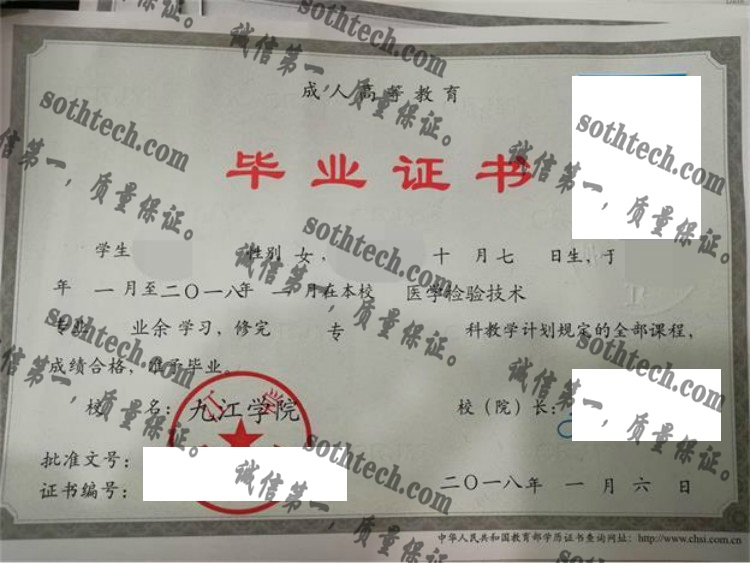 成人高等教育
毕业证书
学生 性别 女， 十 月 七 日生，于
年 一 月至二〇一八年 一 月在本校 医学检验技术
专业 业余 学习，修完 专 科教学计划规定的全部课程，
成绩合格，准予毕业。
校 名：九江学院 校（院）长：
批准文号：
证书编号：
二〇一八年 一 月 六 日
中华人民共和国教育部学历证书查询网址：http://www.chsi.com.cn
江 学
sothtech.com
诚信第一，质量保证。
sothtech.com
诚信第一，质量保证。
sothtech.com
诚信第一，质量保证。
sothtech.com
诚信第一，质量保证。
sothtech.com
诚信第一，质量保证。
sothtech.com
诚信第一，质量保证。
sothtech.com
诚信第一，质量保证。
sothtech.com
诚信第一，质量保证。